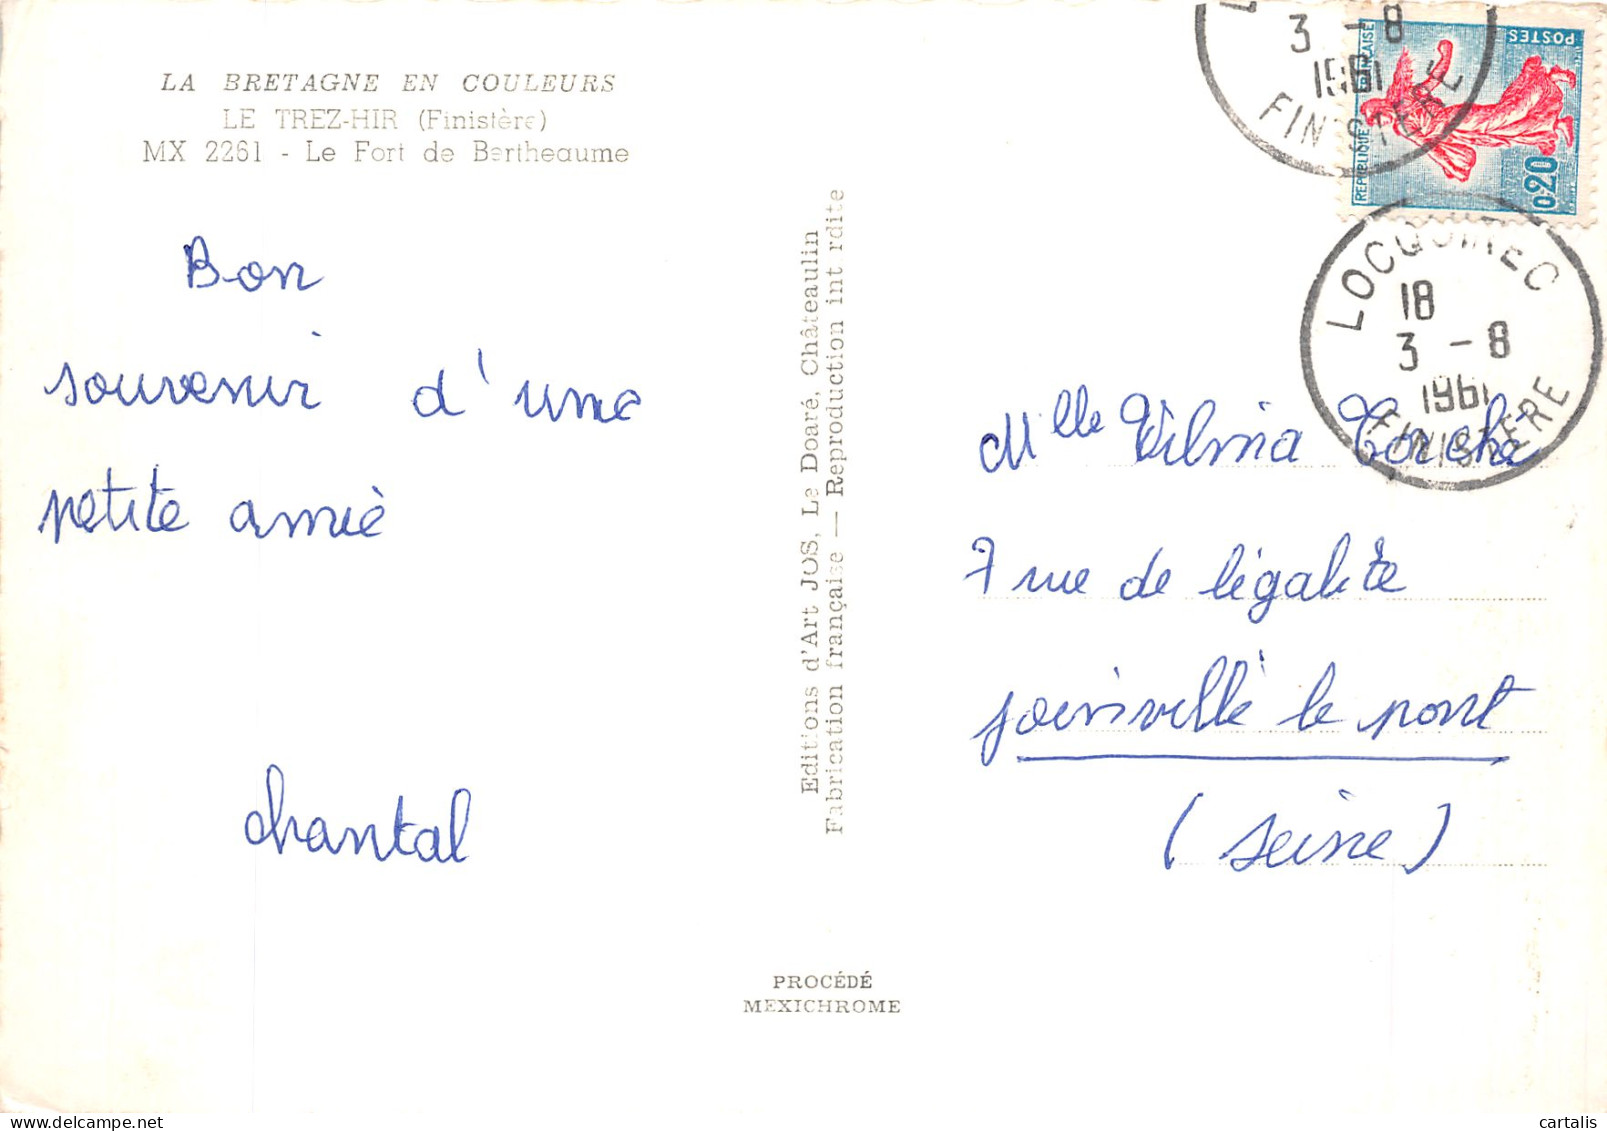 LA BRETAGNE EN COULEURS
LE TREZ-HIR (Finistère)
MX 2261 - Le Fort de Bertheaume
Bon
souvenir d'une
petite amie
chantal
Editions d'Art JOS, Le Doaré, Châteaulin
Fabrication française — Reproduction int rdite
PROCÉDÉ
MEXICHROME
3 - 8
1961
FINISTERE
REPUBLIQUE FRANÇAISE
POSTES
0,20
LOCQUIREC
18
3 - 8
1961
FINISTERE
Mlle Vilma Torchi
7 rue de légalité
joinville le pont
(seine)
cartalis